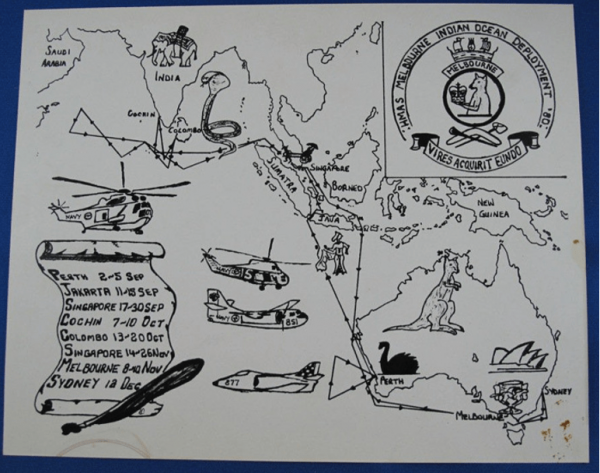 SAUDI
ARABIA
INDIA
COCHIN
COLOMBO
SUMATRA
SINGAPORE
BORNEO
JAVA
NEW
GUINEA
PERTH
MELBOURNE
SYDNEY
"HMAS MELBOURNE INDIAN OCEAN DEPLOYMENT '80"
MELBOURNE
VIRES ACQUIRIT EUNDO
NAVY
PERTH 2-5 SEP
JAKARTA 11-15 SEP
SINGAPORE 17-30 SEP
COCHIN 7-10 OCT
COLOMBO 13-20 OCT
SINGAPORE 14-26 NOV
MELBOURNE 8-10 NOV
SYDNEY 12 DEC
NAVY
NAVY
851
877